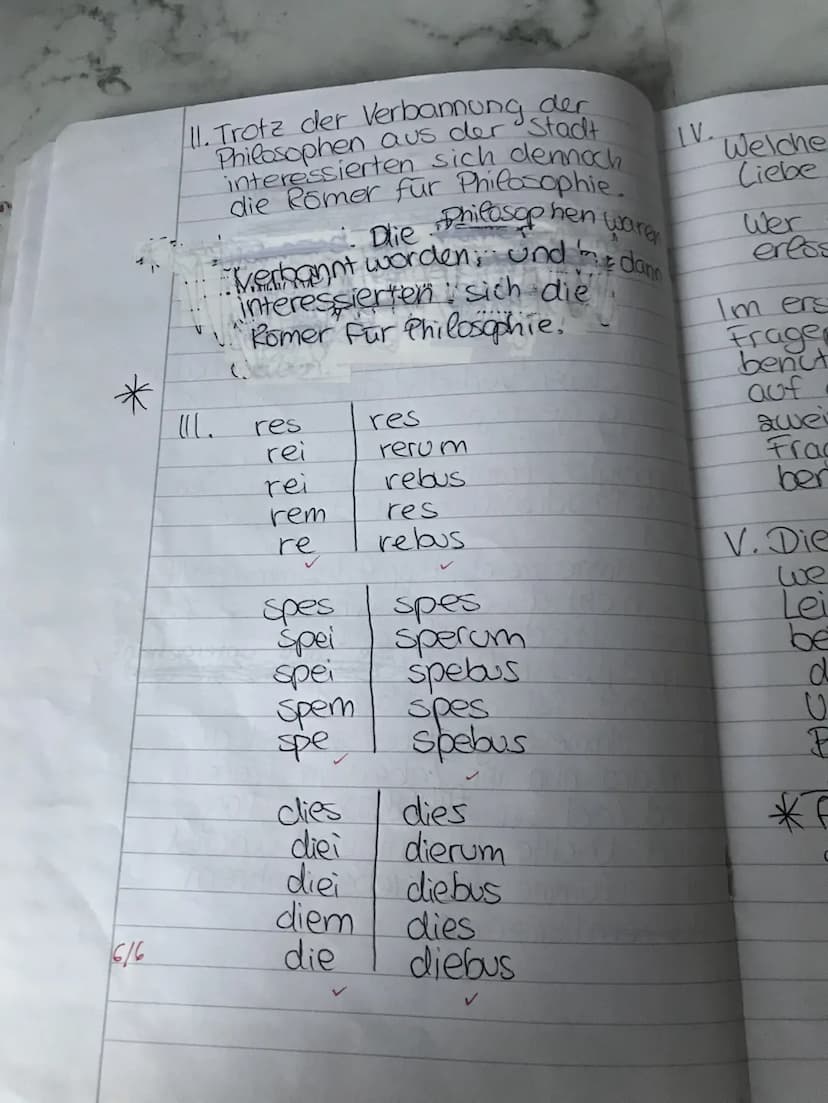 II. Trotz der Verbannung der
Philosophen aus der Stadt
interessierten sich dennoch
die Römer für Philosophie.
Die Philosophen waren
verbannt worden, und dann
interessierten sich die
Römer für Philosophie.
*
III. res | res
rei | rerum
rei | rebus
rem | res
re | rebus
spes | spes
spei | sperum
spei | spebus
spem | spes
spe | spebus
dies | dies
diei | dierum
diei | diebus
diem | dies
die | diebus
6/6
IV. Welche
Liebe
Wer
Im ers
Frage
benut
auf
zwei
Frag
ber
V. Die
we
Lei
be
d
U
*